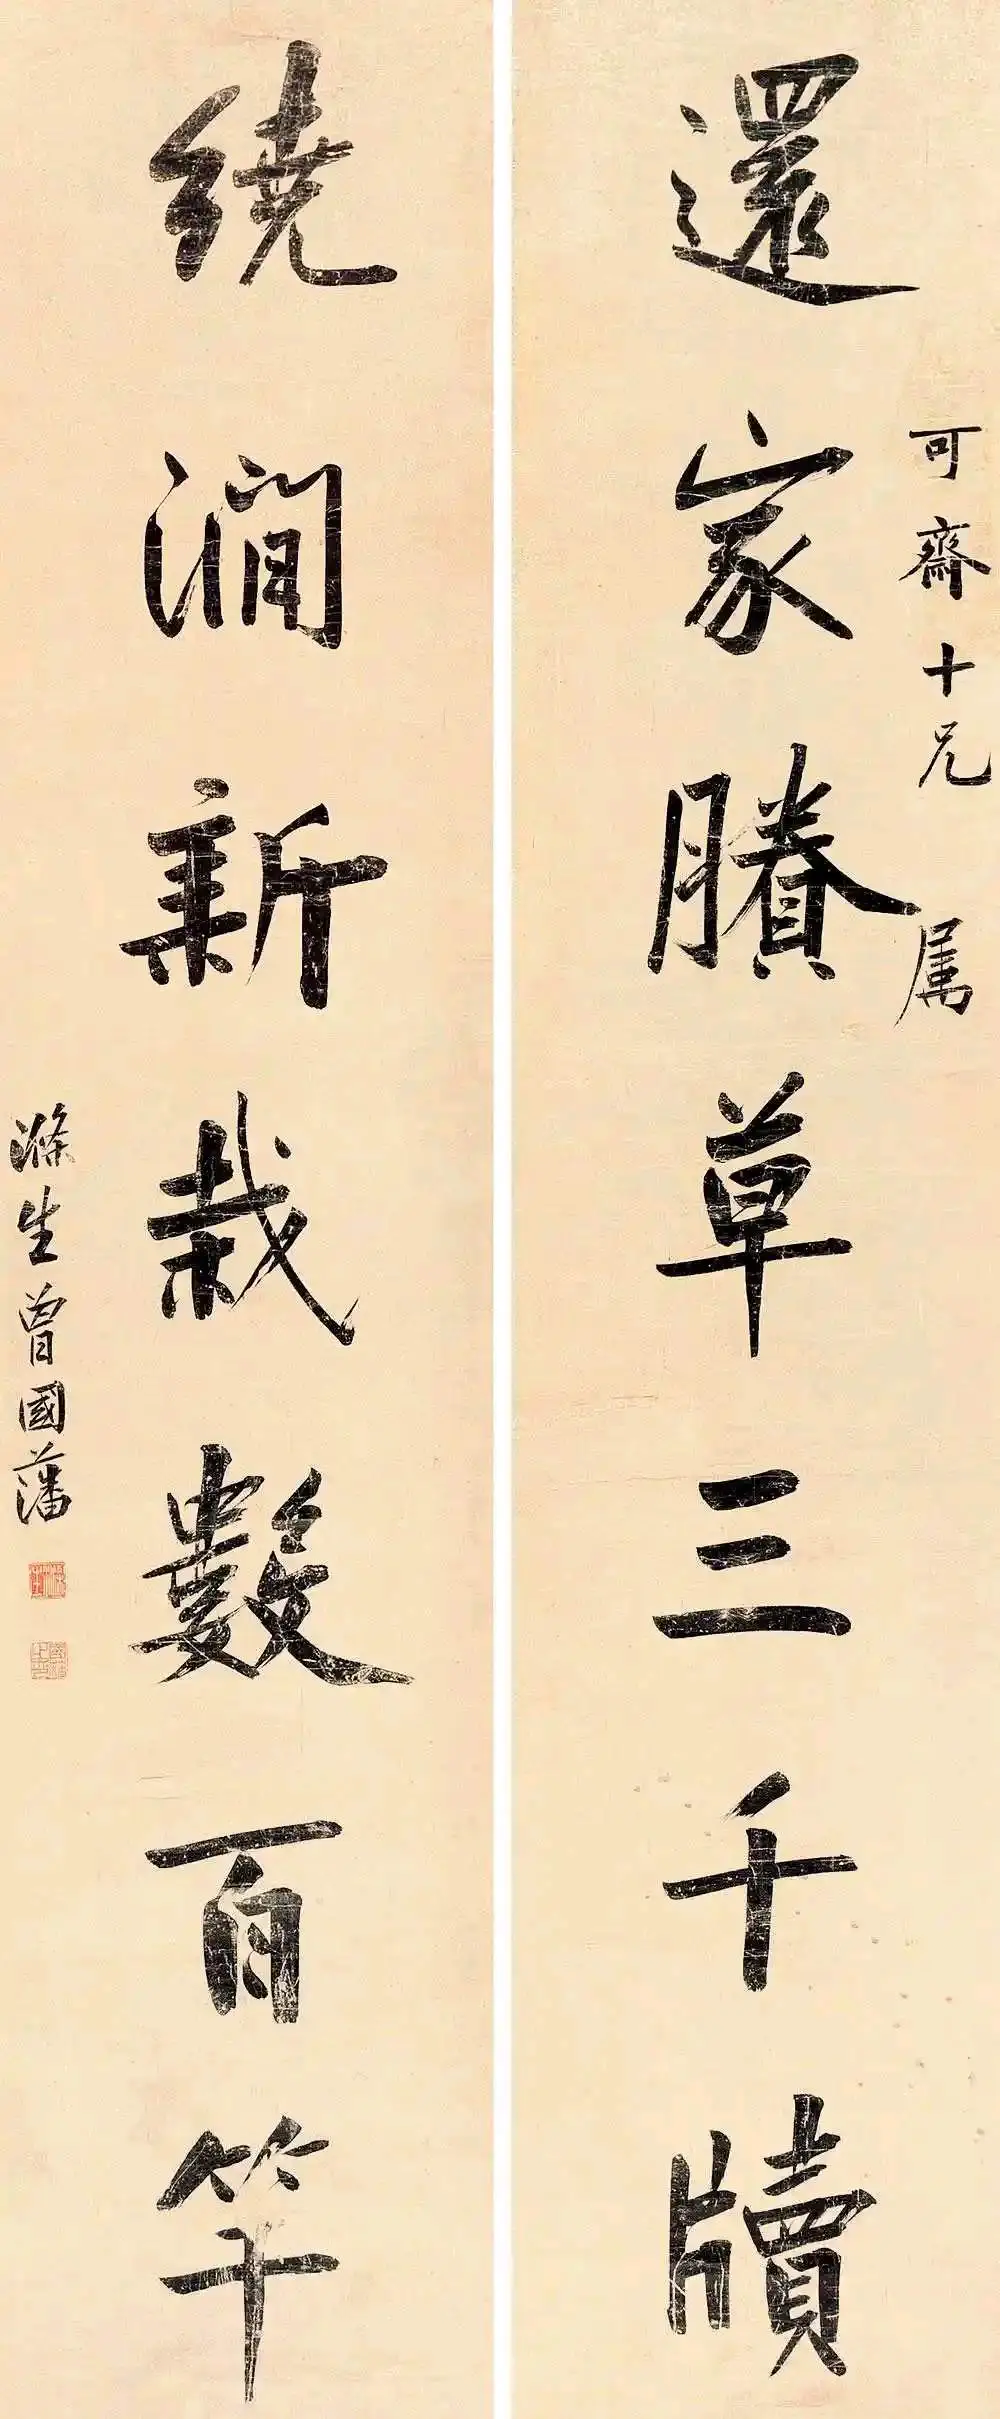 還家賸草三千牘
可齋十兄屬
繞澗新栽數百竿
滌生曾國藩